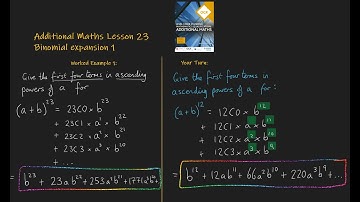 Additional Maths Lesson 23
Binomial expansion 1
OCR
ADDITIONAL MATHS
Worked Example 1:
Give the first four terms in ascending
powers of a for
(a+b)²³ = 23C0 × b²³
+ 23C1 × a¹ × b²²
+ 23C2 × a² × b²¹
+ 23C3 × a³ × b²⁰
+ ...
b²³ + 23ab²² + 253a²b²¹ + 1771a³b²⁰ +
Your Turn:
Give the first four terms in
ascending powers of a for:
(a+b)¹² = 12C0 × b¹²
+ 12C1 × a¹ × b¹¹
+ 12C2 × a² × b¹⁰
+ 12C3 × a³ × b⁹
= b¹² + 12ab¹¹ + 66a²b¹⁰ + 220a³b⁹ + ...